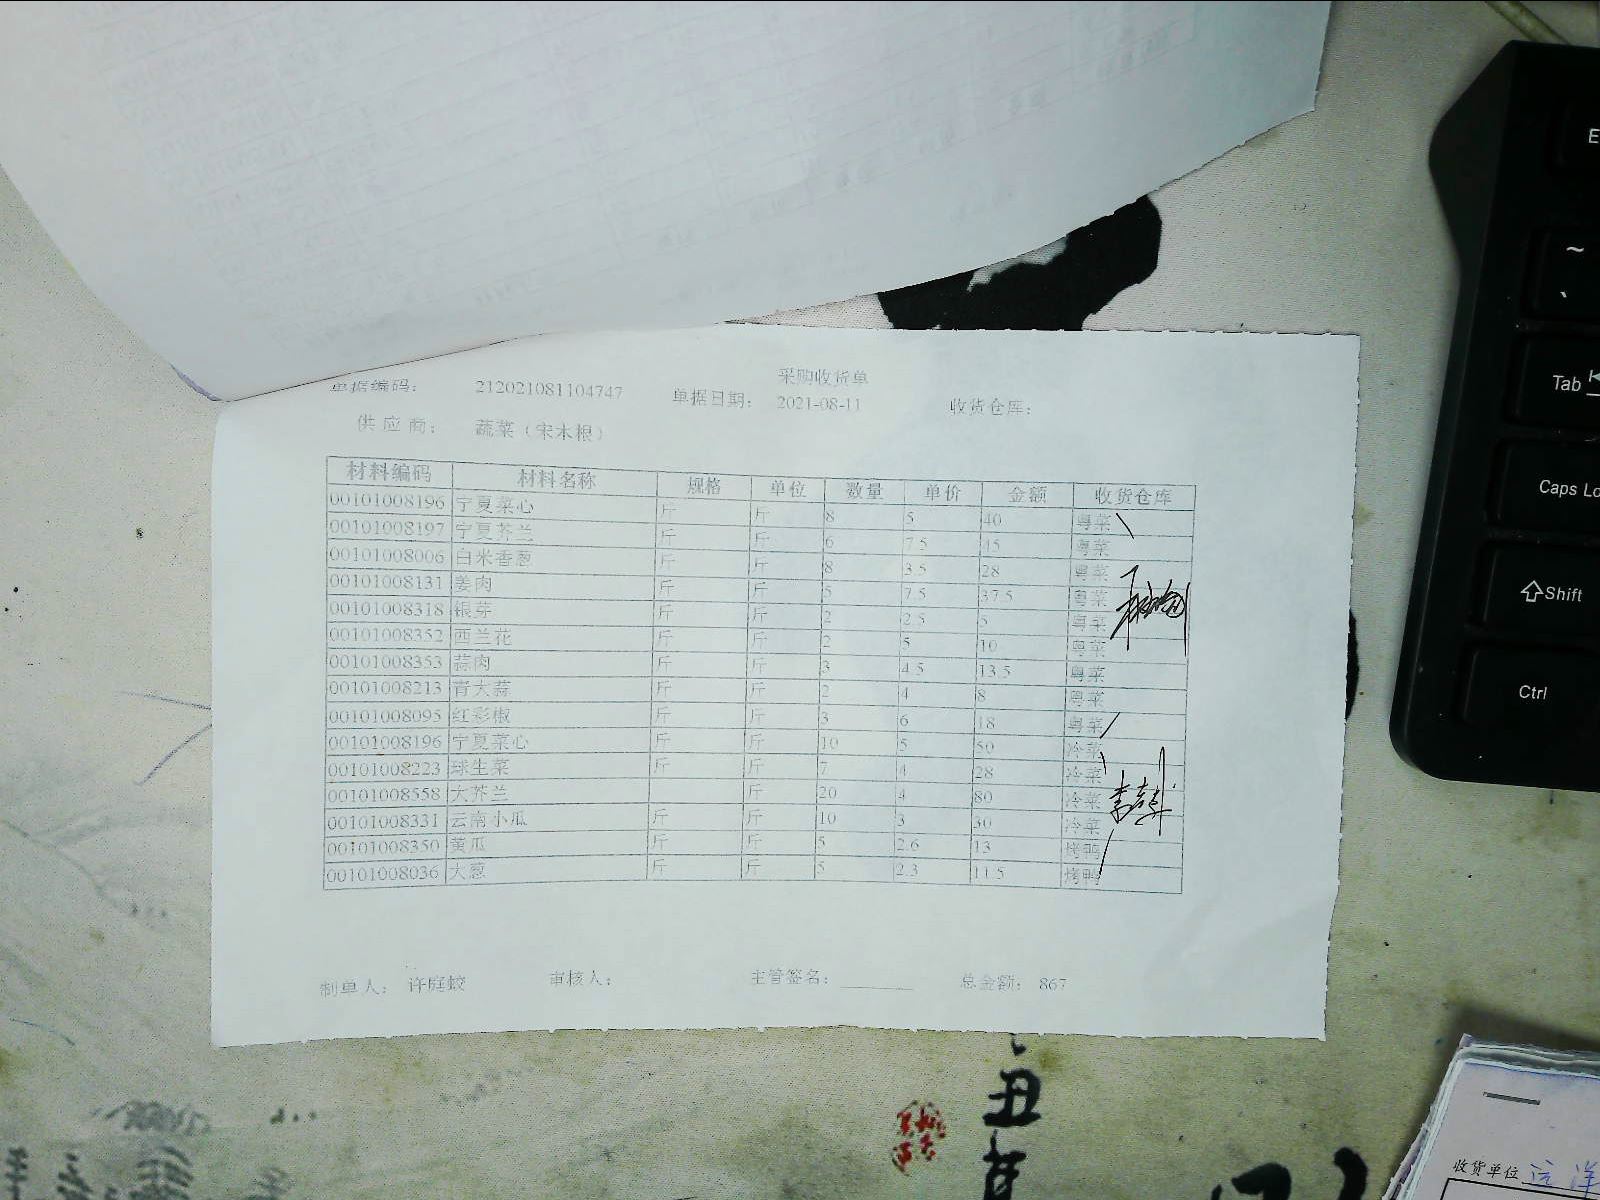 采购收货单
单据编码： 212021081104747 单据日期： 2021-08-11 收货仓库：
供应商： 蔬菜（宋木根）
材料编码 材料名称 规格 单位 数量 单价 金额 收货仓库
00101008196 宁夏菜心 斤 斤 8 5 40 粤菜
00101008197 宁夏芥兰 斤 斤 6 7.5 45 粤菜
00101008006 白米香葱 斤 斤 8 3.5 28 粤菜
00101008131 姜肉 斤 斤 5 7.5 37.5 粤菜
00101008318 银芽 斤 斤 2 2.5 5 粤菜
00101008352 西兰花 斤 斤 2 5 10 粤菜
00101008353 蒜肉 斤 斤 3 4.5 13.5 粤菜
00101008213 青大蒜 斤 斤 2 4 8 粤菜
00101008095 红彩椒 斤 斤 3 6 18 粤菜
00101008196 宁夏菜心 斤 斤 10 5 50 冷菜
00101008223 球生菜 斤 斤 7 4 28 冷菜
00101008558 大芥兰 斤 20 4 80 冷菜
00101008331 云南小瓜 斤 斤 10 3 30 冷菜
00101008350 黄瓜 斤 斤 5 2.6 13 烤鸭
00101008036 大葱 斤 斤 5 2.3 11.5 烤鸭
制单人： 许庭蛟 审核人： 主管签名： 总金额： 867
~
Tab
Caps Lo
Shift
Ctrl
丑
收货单位